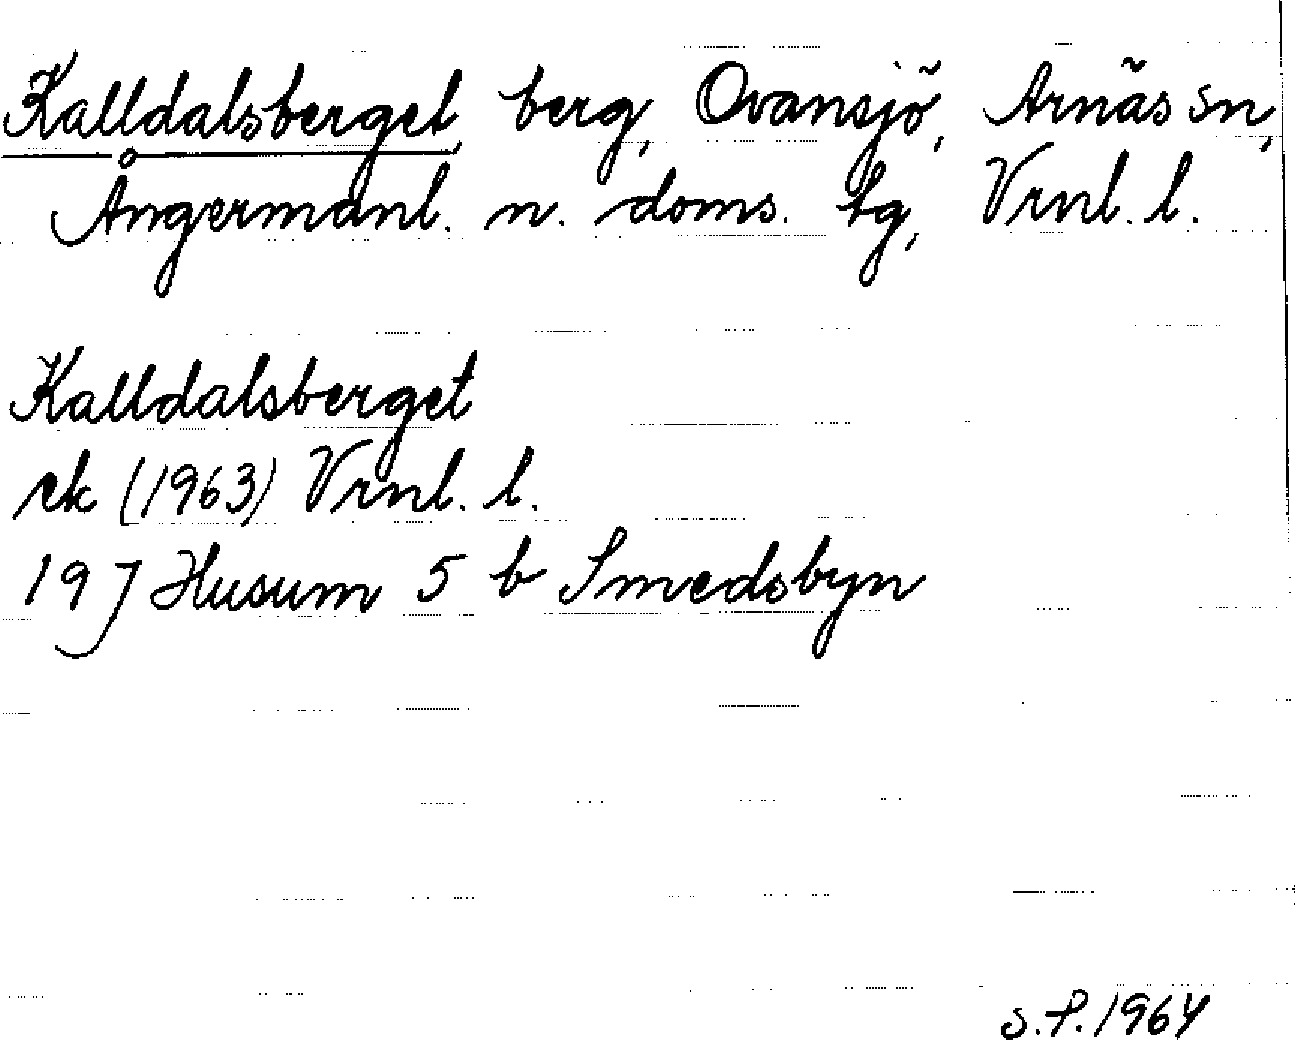 Kalldalsberget, berg, Ovansjö, Arnäs sn,
Ångermanl. n. doms. tg, Vrnl. l.
Kalldalsberget
ek (1963) Vrnl. l.
19 J Husum 5 b Smedsbyn
S.P. 1964